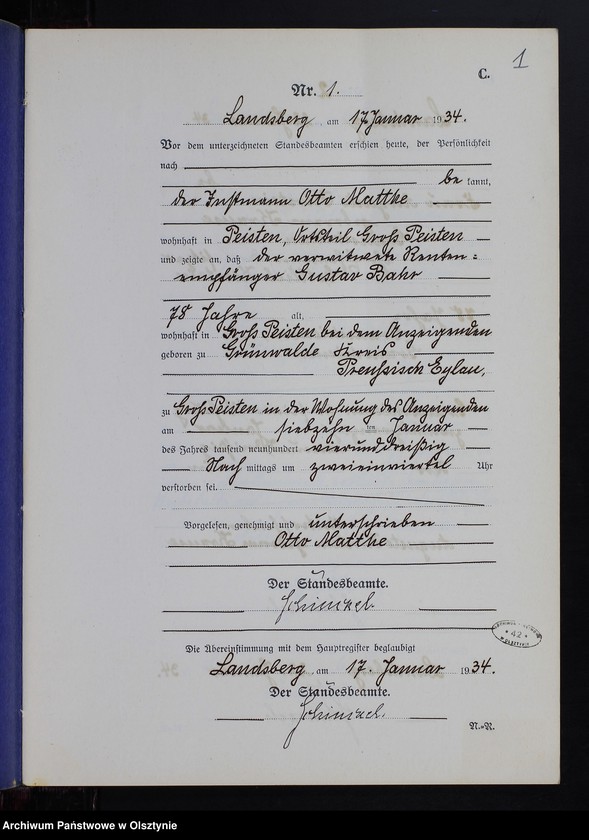 1
C.
Nr. 1.
Landsberg, am 17. Januar 1934.
Vor dem unterzeichneten Standesbeamten erschien heute, der Persönlichkeit
nach
be kannt,
der Instmann Otto Mattke
wohnhaft in Peisten, Ortsteil Gross Peisten
und zeigte an, daß der verwitwete Renten=
empfänger Gustav Bahr
78 Jahre alt,
wohnhaft in Gross Peisten bei dem Anzeigenden
geboren zu Grünwalde Kreis
Preussisch Eylau,
zu Gross Peisten in der Wohnung des Anzeigenden
am siebzehn ten Januar
des Jahres tausend neunhundert vierunddreißig
Nach mittags um zweieinviertel Uhr
verstorben sei.
Vorgelesen, genehmigt und unterschrieben
Otto Mattke
Der Standesbeamte.
Die Übereinstimmung mit dem Hauptregister beglaubigt
Landsberg, am 17. Januar 1934.
Der Standesbeamte.
N.=R.
* 42 *
W OLSZTYNIE
Archiwum Państwowe w Olsztynie